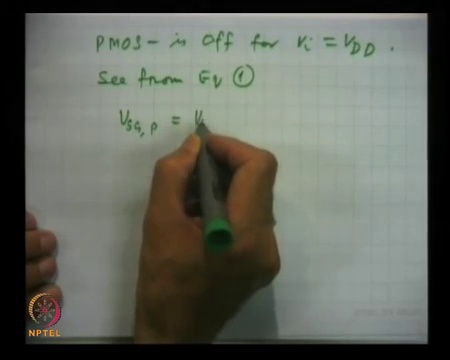 PMOS - is Off for Vi = VDD.
See from Eq ①
VSG,P = V
NPTEL